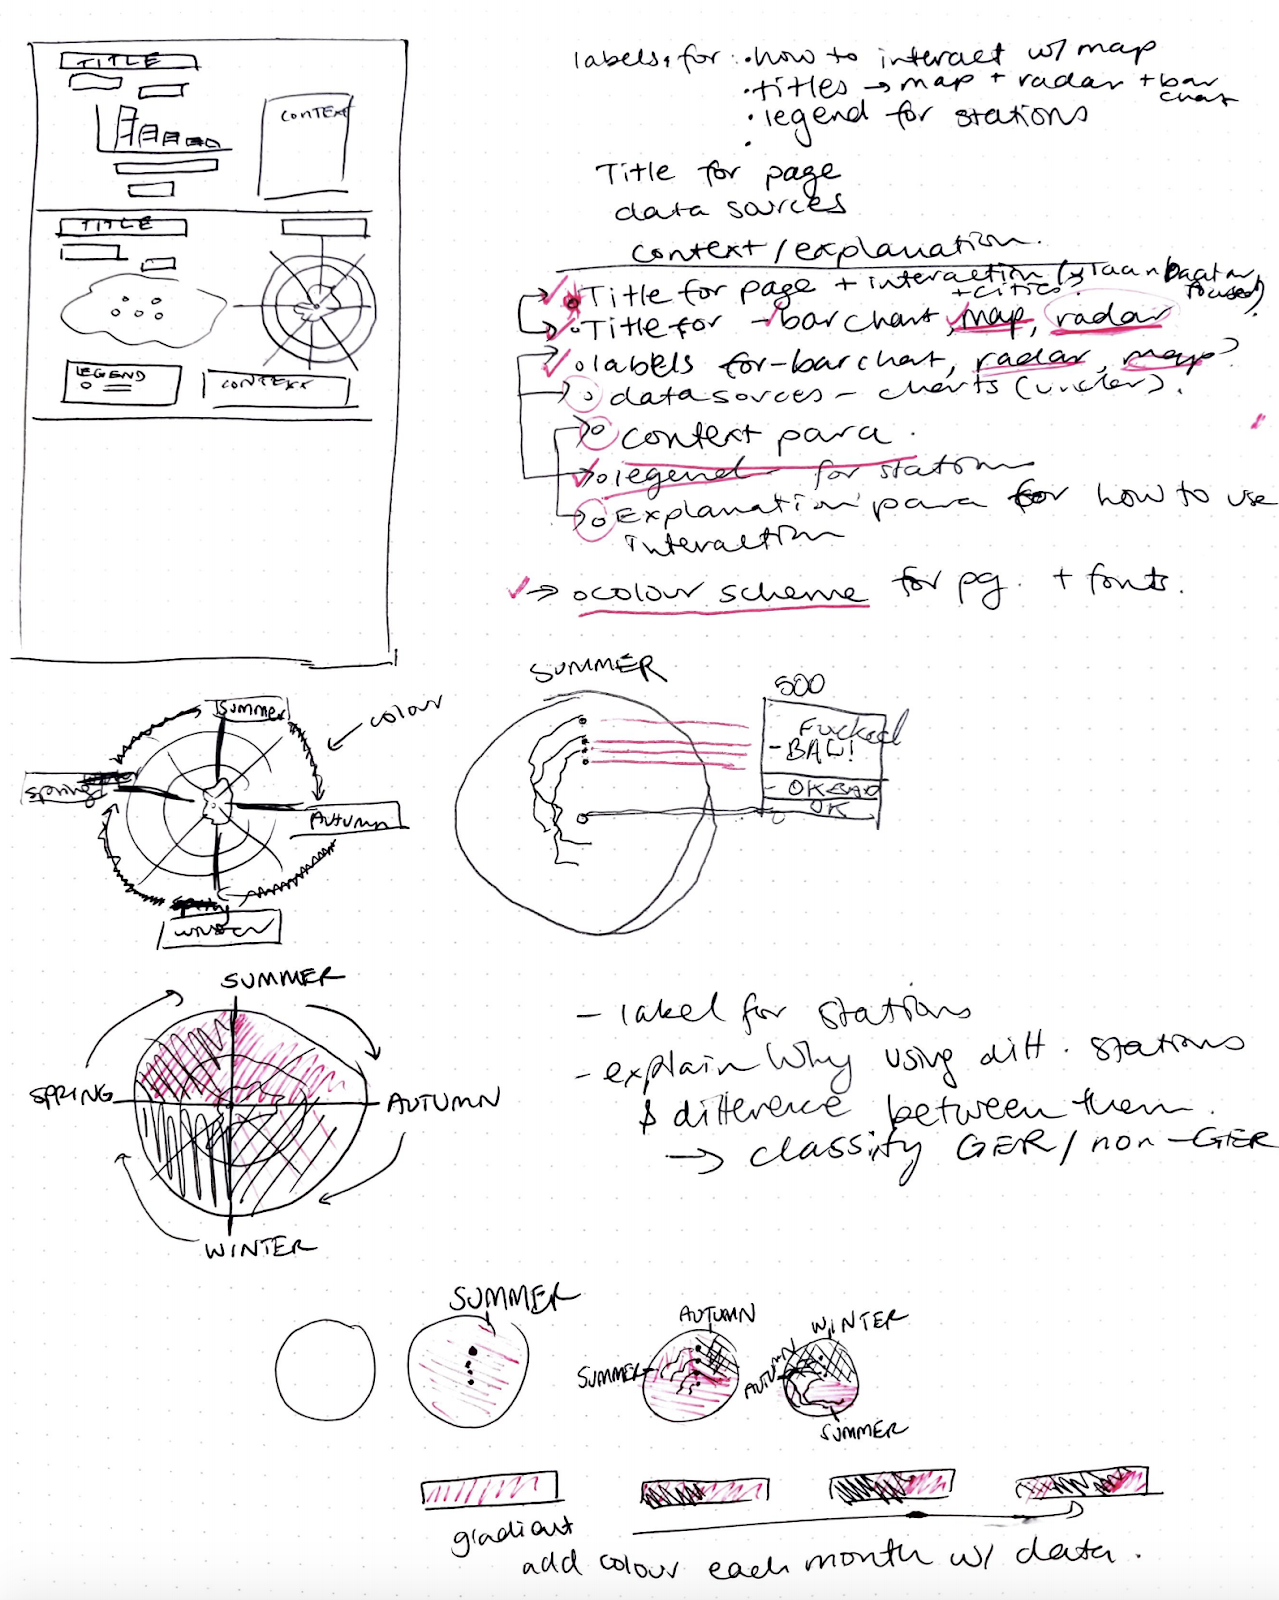 TITLE
CONTEXT
TITLE
LEGEND
CONTEXT
labels for: • how to interact w/ map
• titles → map + radar + bar
chart
• legend for stations
Title for page
data sources
context/explanation.
Title for page + interaction
+ cities
focused)
Title for - bar chart, map, radar
labels for - bar chat, radar, map?
data sorces - charts (under).
context para.
legend for station
Explanation para for how to use
interaction
→ colour scheme for pg. + fonts.
Summer
colour
Spring
AUTUMN
WINTER
SUMMER
500
Fucked
- BAD!
- OK BAD
OK
SUMMER
SPRING
AUTUMN
WINTER
- label for stations
- explain why using diff. stations
& difference between them.
→ classify GER/non-GER
SUMMER
AUTUMN
SUMMER
WINTER
AUTUMN
SUMMER
gradiant
add colour each month w/ data.